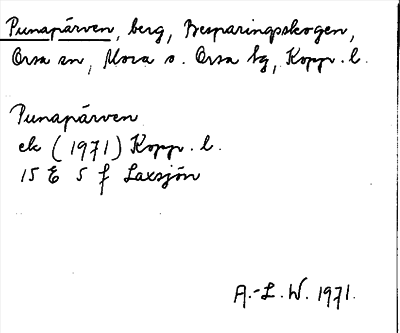 Punapärven, berg, Besparingsskogen,
Orsa sn, Mora o. Orsa tg, Kopp. l.
Punapärven
ek (1971) Kopp. l.
15 E 5 f Laxsjön
A.-L. W. 1971.